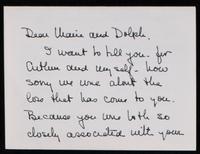 Dear Maria and Dolph.
I want to tell you - for
and myself - how
sorry we were about the
loss that has come to you.
Because you were both so
closely associated with your